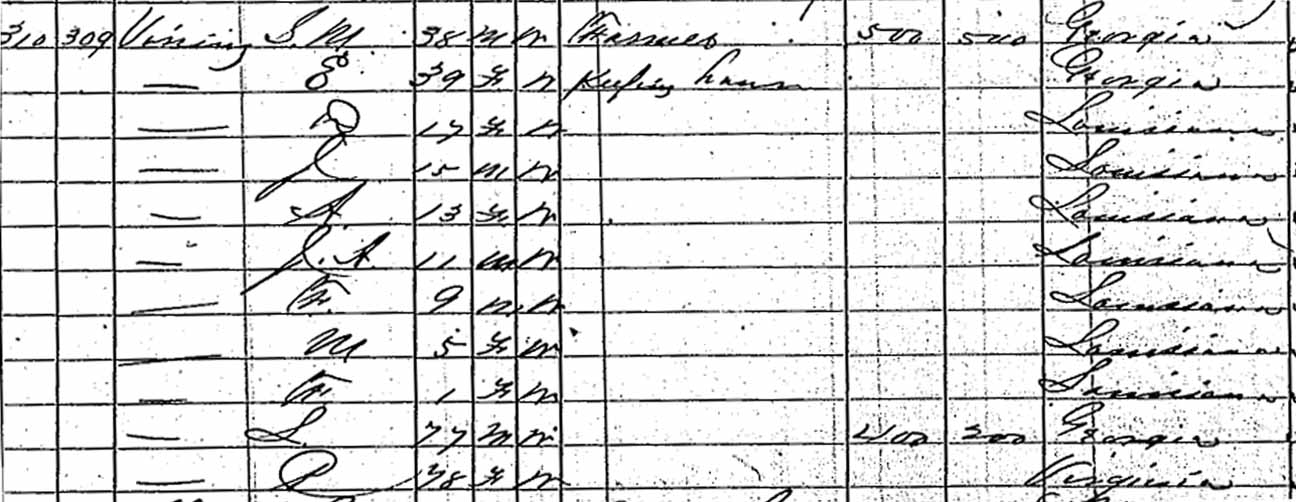 310 309 Vining S. M. 38 M W Farmer 500 500 Georgia
— E 39 F W Keeping house Georgia
— 17 F W Louisiana
— J 15 M W Louisiana
— A. 13 F W Louisiana
— J. A. 11 M W Louisiana
— 9 M W Louisiana
— M 5 F W Louisiana
— 1 F W Louisiana
— S. 77 M W 400 200 Georgia
— P 78 F W Virginia